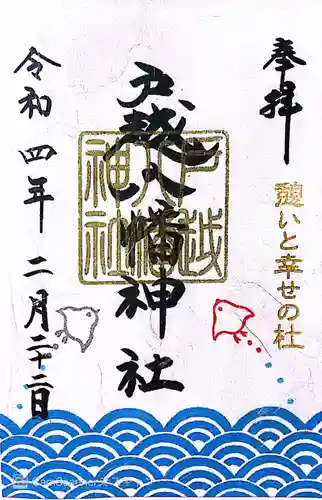 奉拝
憩いと幸せの杜
戸越八幡神社
戸越
八幡
神社
令和四年二月二十二日